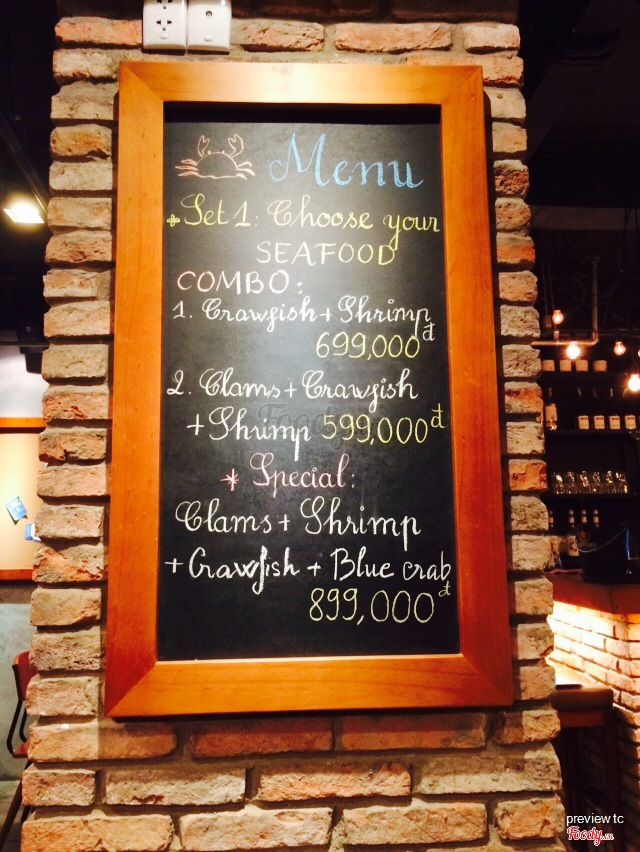 Menu
Set 1: Choose your
SEAFOOD
COMBO:
1. Crawfish + Shrimp
699,000đ
2. Clams + Crawfish
+ Shrimp 599,000đ
* Special:
Clams + Shrimp
+ Crawfish + Blue crab
899,000đ
preview tc
Foody.vn